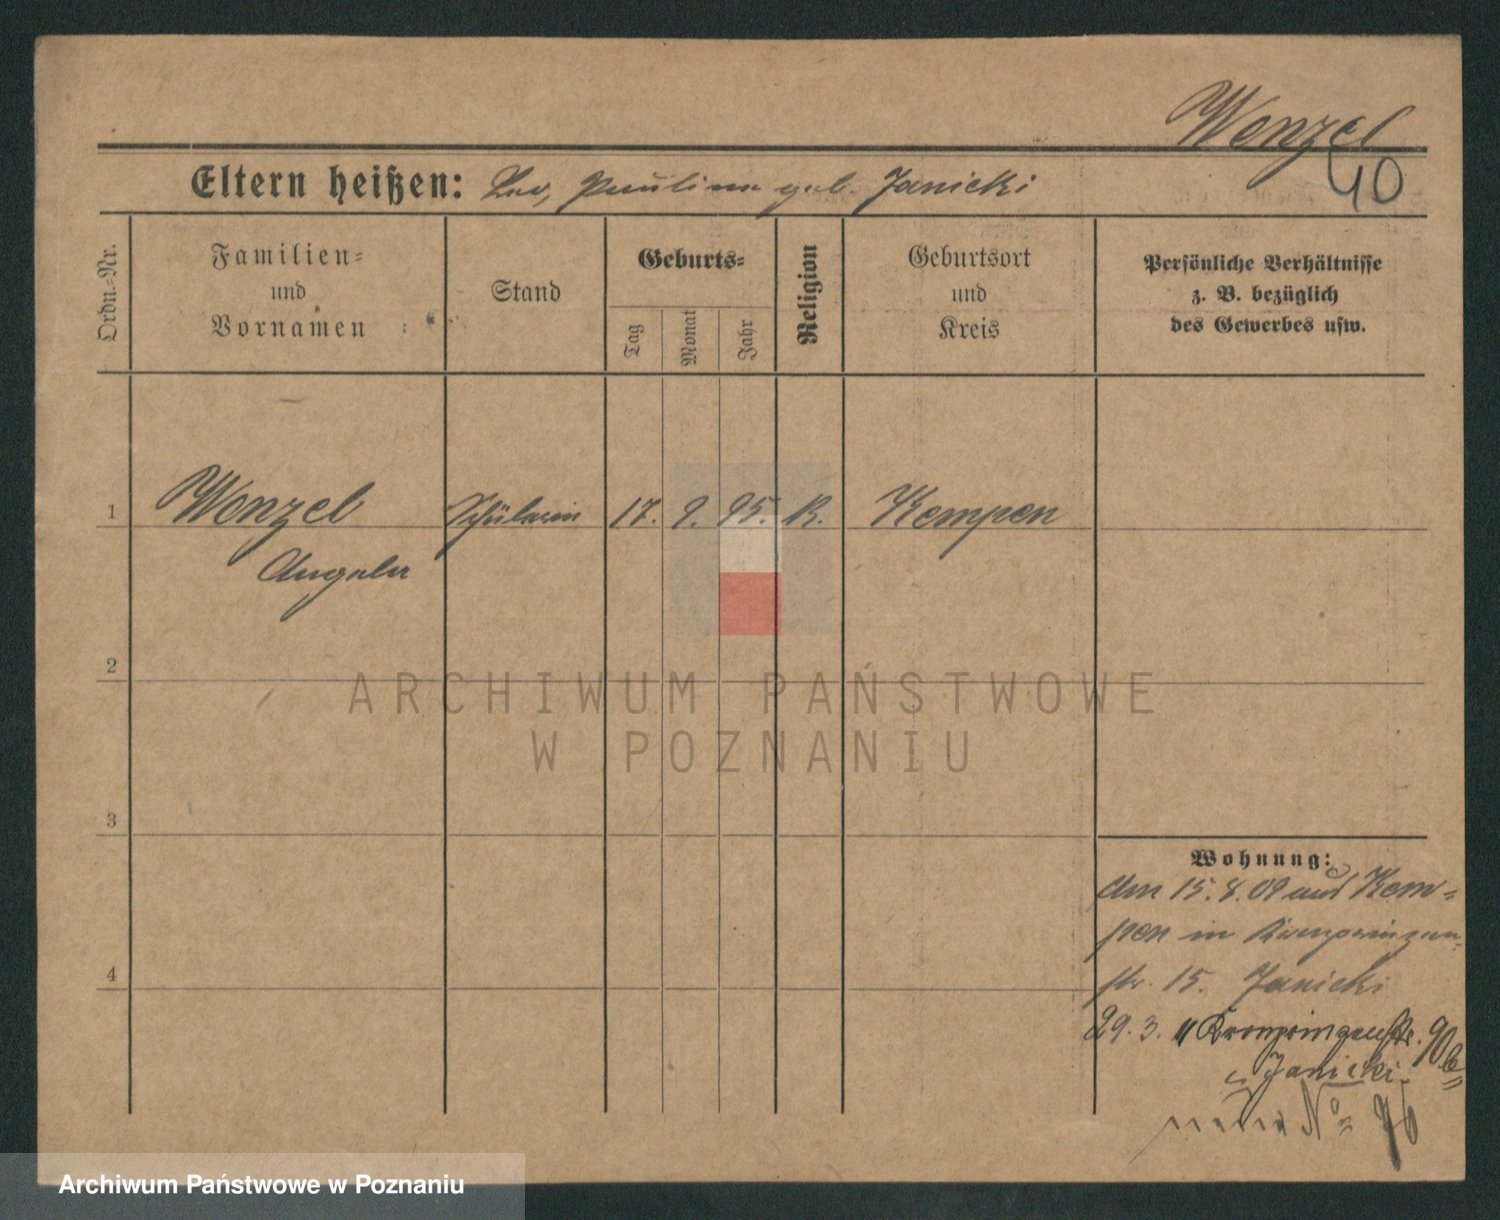 Wenzel
40
Eltern heißen: Leo, Paulina geb. Janicki
Ordn.-Nr.
Familien-
und
Vornamen
Stand
Geburts-
Tag
Monat
Jahr
Religion
Geburtsort
und
Kreis
Persönliche Verhältnisse
z. B. bezüglich
des Gewerbes usw.
1 Wenzel Schülerin 17. 9. 95. K. Kempen
Angela
2
ARCHIWUM PAŃSTWOWE
W POZNANIU
3
Wohnung:
Am 15.8.09 aus Kem-
pen in Kronprinzen-
str. 15. Janicki
4
29.3. 11 Kronprinzenstr. 90b
b Janicki
neue No 76
Archiwum Państwowe w Poznaniu